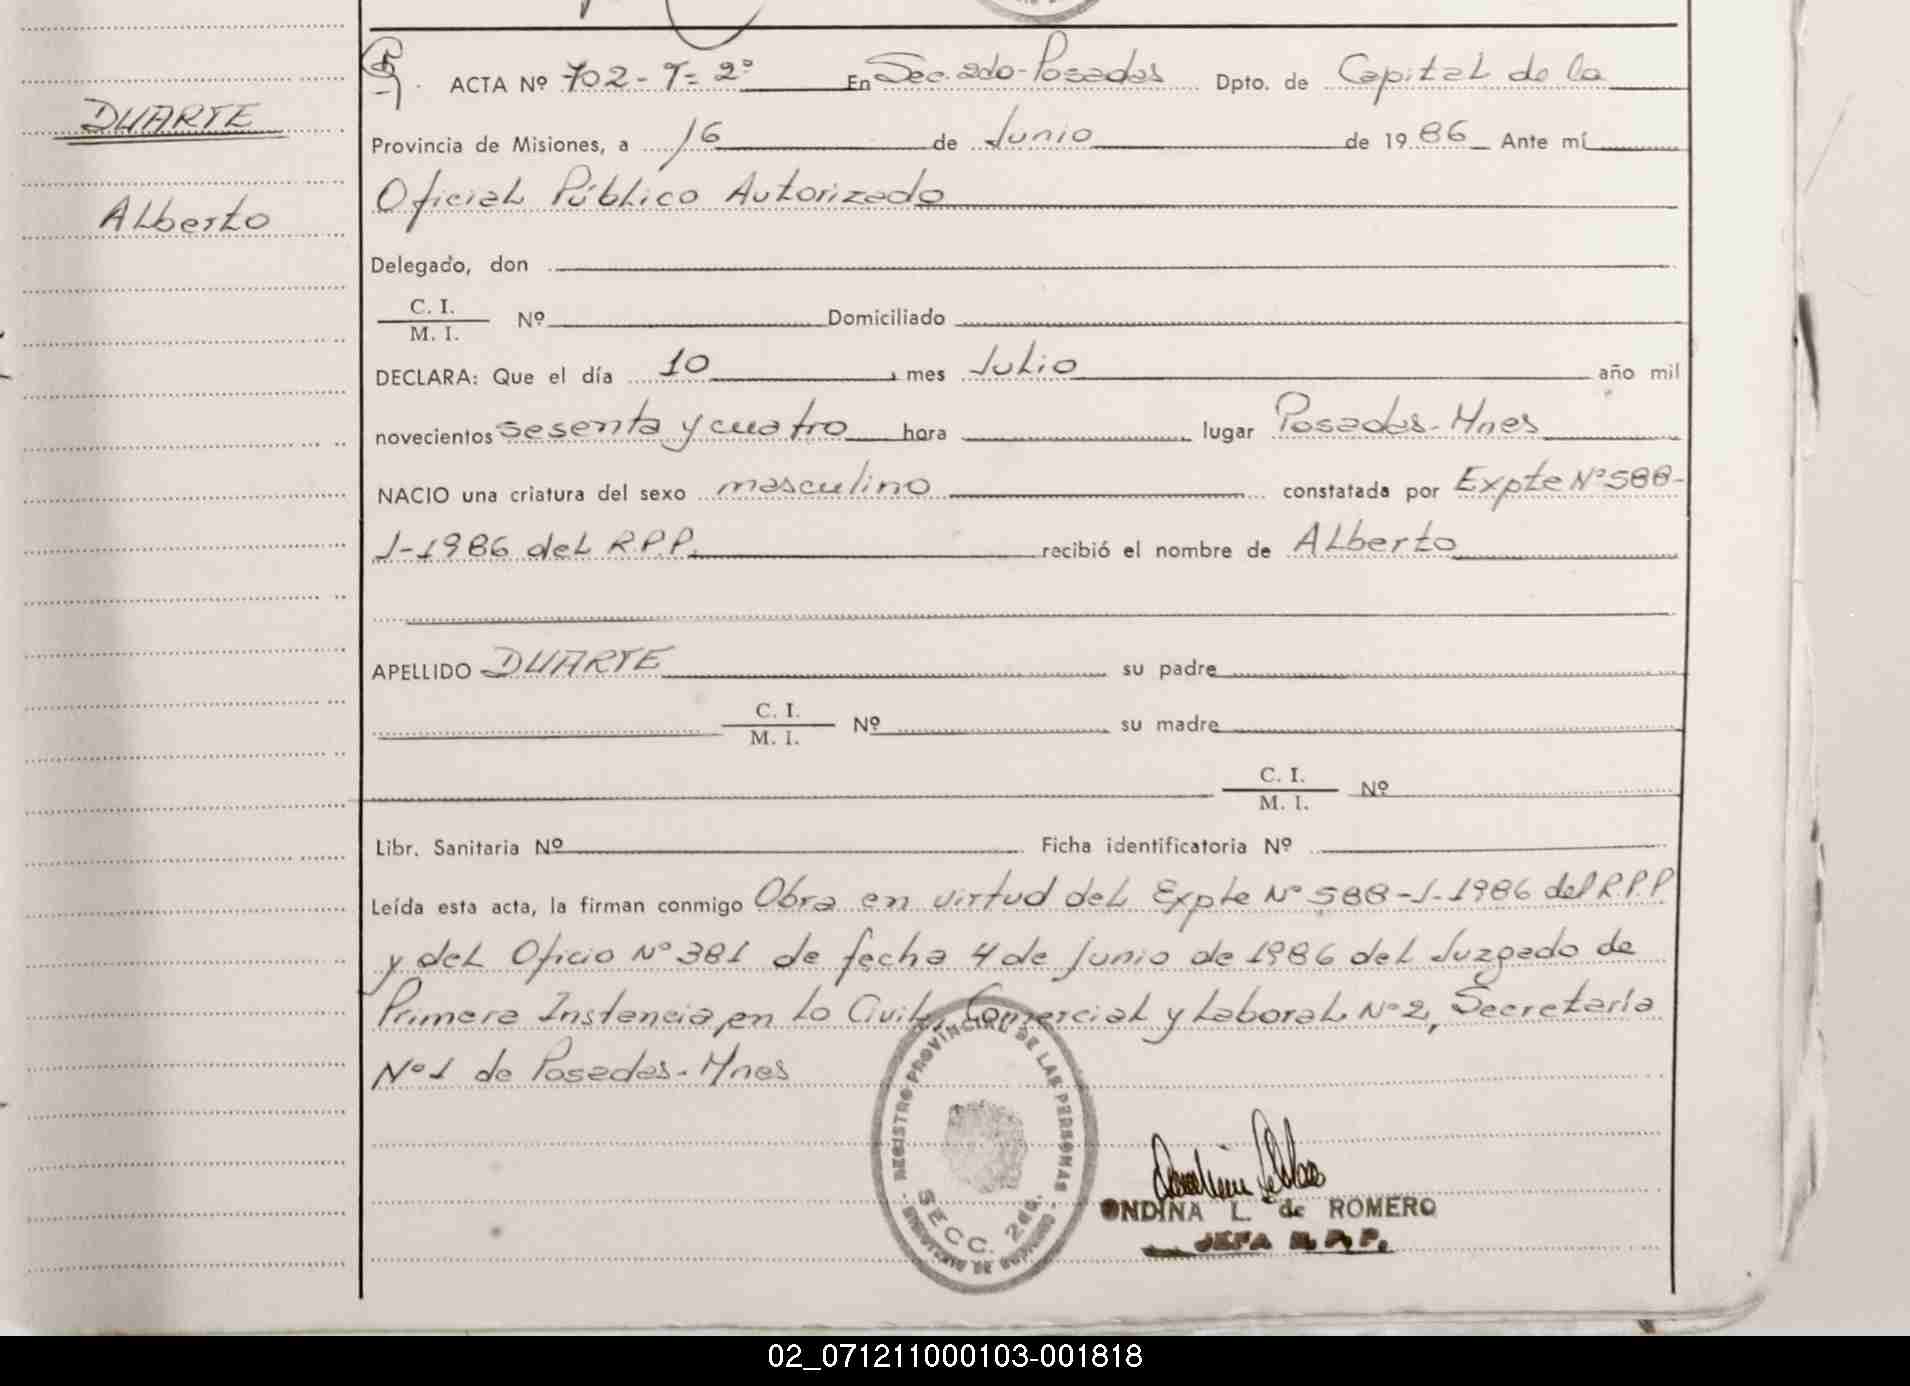 DUARTE
Alberto
ACTA Nº 702 - T= 2º En Sec. 2do-Posadas Dpto. de Capital de la
Provincia de Misiones, a 16 de Junio de 1986 Ante mí
Oficial Público Autorizado
Delegado, don
C. I.
M. I.
Nº Domiciliado
DECLARA: Que el día 10, mes Julio año mil
novecientos sesenta y cuatro hora lugar Posadas-Mnes
NACIO una criatura del sexo masculino constatada por Expte Nº 588-
J-1986 del R.P.P. recibió el nombre de Alberto
APELLIDO DUARTE su padre
C. I.
M. I.
Nº su madre
C. I.
M. I.
Nº
Libr. Sanitaria Nº Ficha identificatoria Nº
Leída esta acta, la firman conmigo Obra en virtud del Expte Nº 588-J-1986 del R.P.P
y del Oficio Nº 381 de fecha 4 de Junio de 1986 del Juzgado de
Primera Instancia en lo Civil, Comercial y Laboral Nº 2, Secretaría
Nº 1 de Posadas-Mnes
REGISTRO PROVINCIAL DE LAS PERSONAS
SECC. 2da.
ONDINA L. de ROMERO
JEFA R. P. P.
02_071211000103-001818